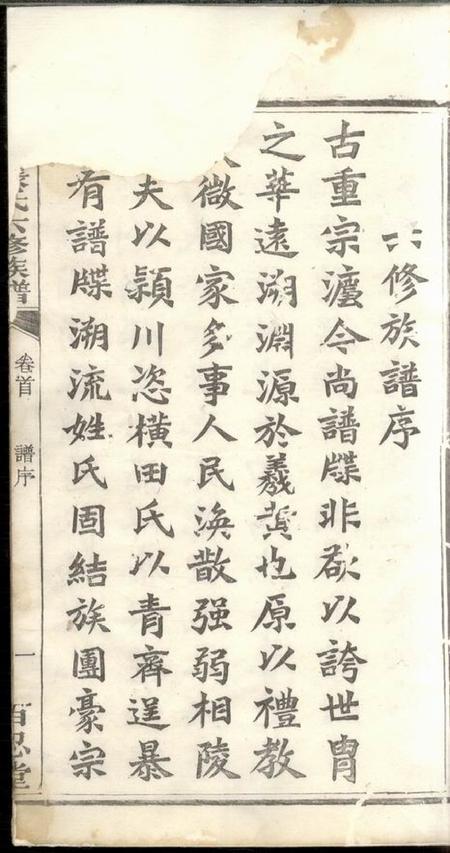 六修族譜序
古重宗灋今尚譜牒非欲以誇世胄
之華遠溯淵源於羲黄也原以禮教
微國家多事人民渙散强弱相陵
夫以潁川恣橫田氏以青齊逞暴
有譜牒溯流姓氏固結族團豪宗
氏六修族譜
卷首
譜序
一
百忍堂